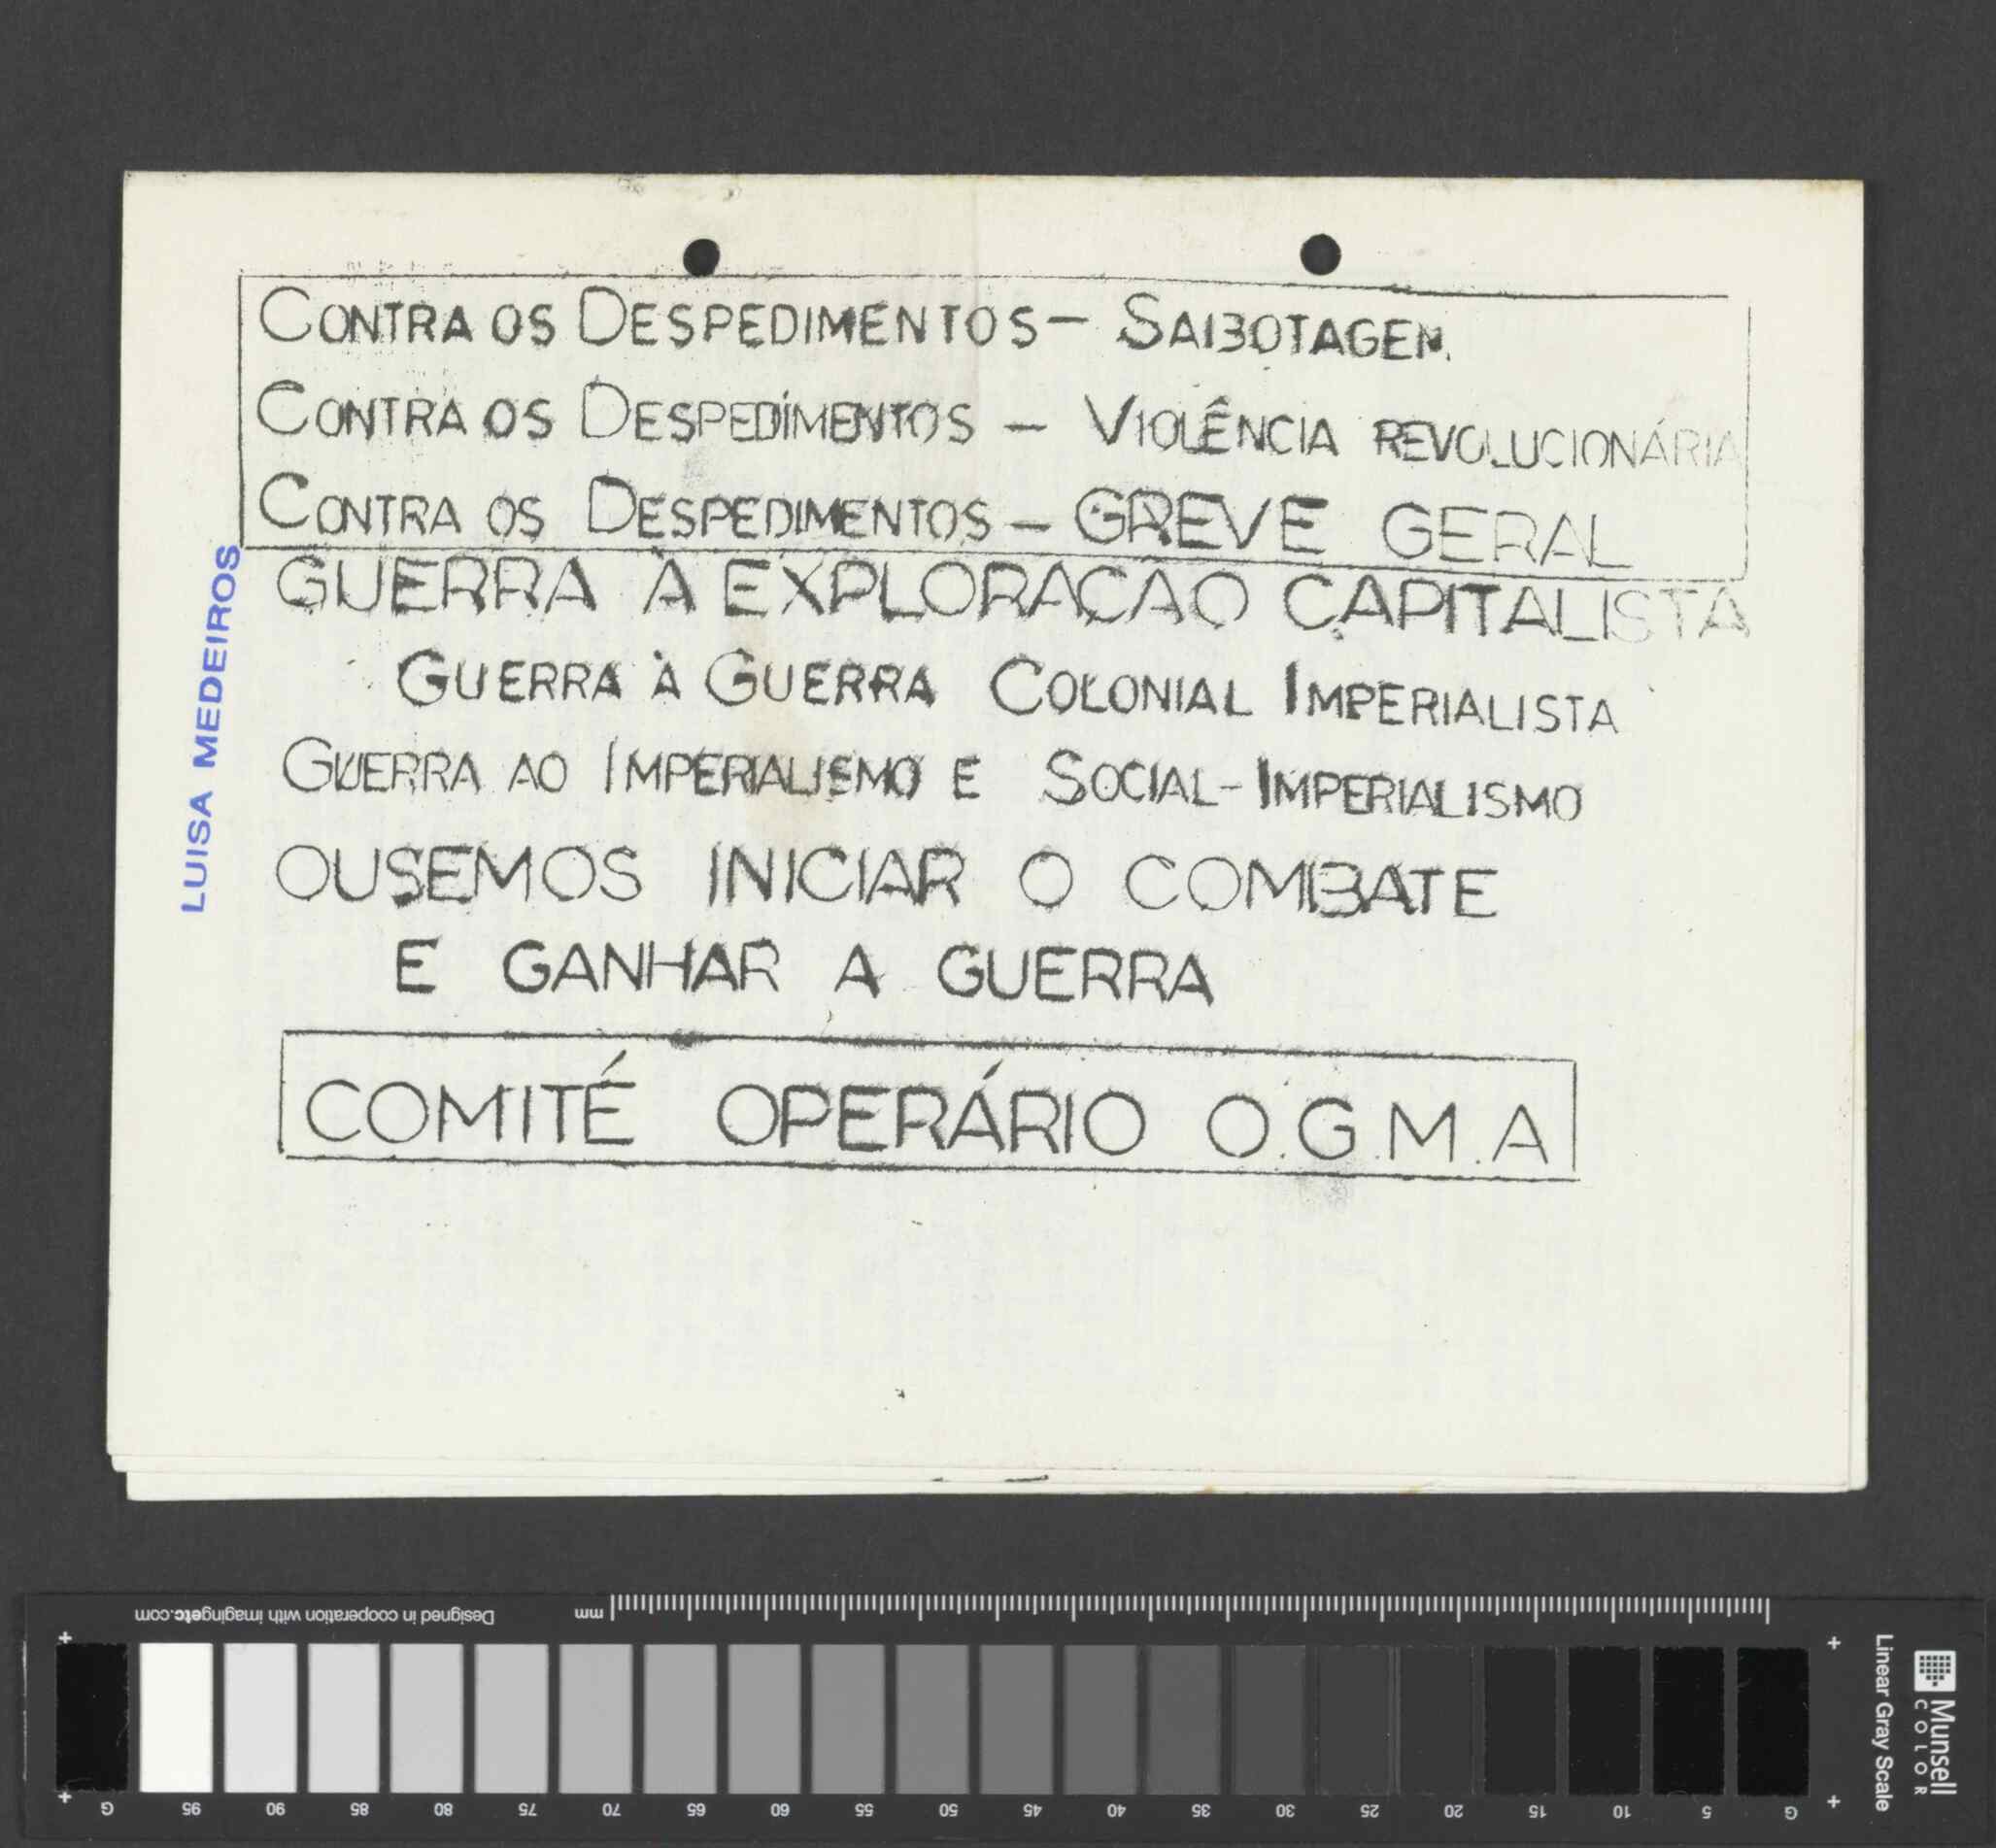 CONTRA OS DESPEDIMENTOS - SABOTAGEM.
CONTRA OS DESPEDIMENTOS - VIOLÊNCIA REVOLUCIONÁRIA
CONTRA OS DESPEDIMENTOS - GREVE GERAL
GUERRA À EXPLORAÇAO CAPITALISTA
GUERRA À GUERRA COLONIAL IMPERIALISTA
GUERRA AO IMPERIALISMO E SOCIAL-IMPERIALISMO
OUSEMOS INICIAR O COMBATE
E GANHAR A GUERRA
COMITÉ OPERÁRIO O.G.M.A
LUISA MEDEIROS
Designed in cooperation with imagingetc.com
mm
G 95 90 85 80 75 70 65 60 55 50 45 40 35 30 25 20 15 10 5 G
Linear Gray Scale
Munsell
COLOR